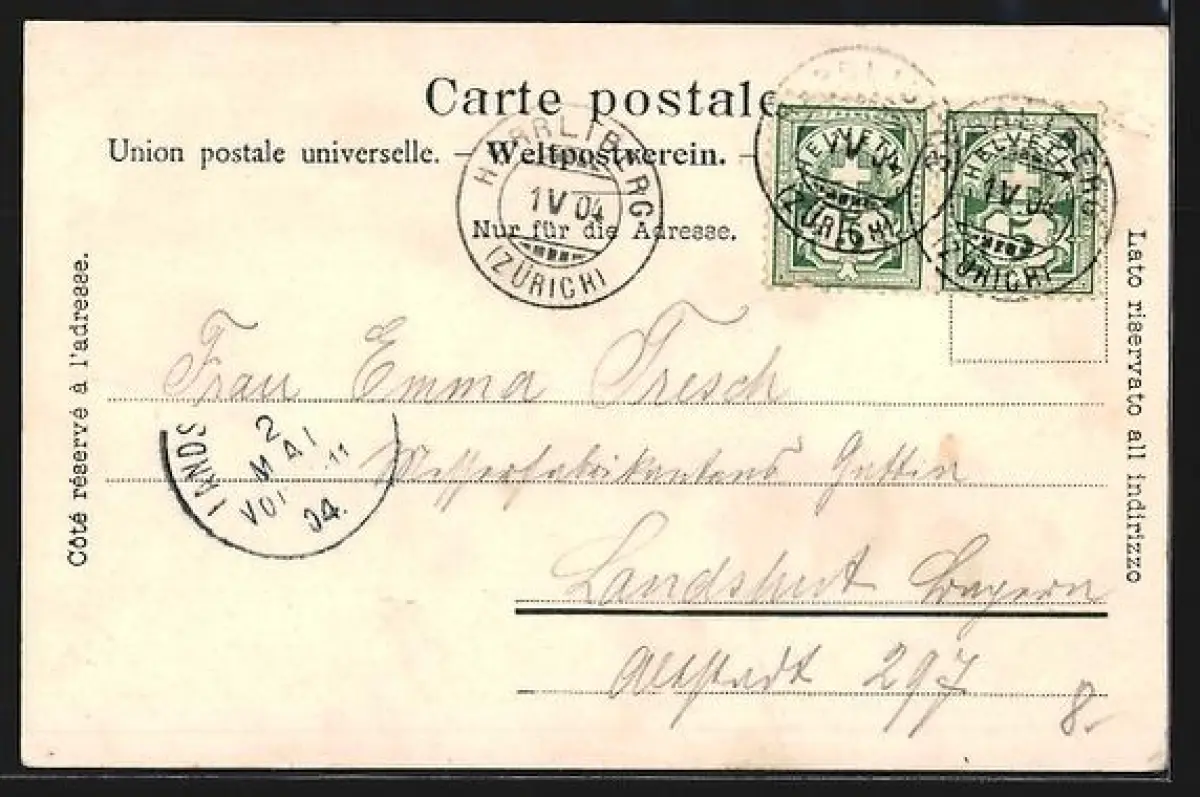 Carte postale
Union postale universelle. — Weltpostverein. —
Nur für die Adresse.
HERRLIBERG
1 V 04
(ZÜRICH)
HELVETIA
1 V 04
5
(ZÜRICH)
HERRLIBERG
HELVETIA
1 V 04
5
(ZÜRICH)
Côté réservé à l'adresse.
Lato riservato all indirizzo
Frau Emma Tresch
LANDS
2
MAI
VOR. 11
04.
Messerfabrikantens Gattin
Landshut Bayern
Altstadt 297
8.